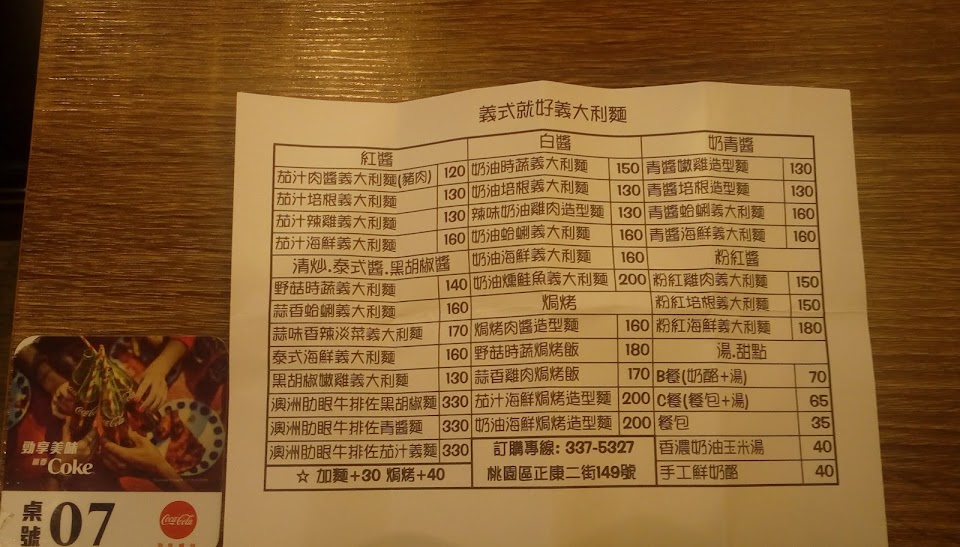 義式就好義大利麵
紅醬
茄汁肉醬義大利麵(豬肉) 120
茄汁培根義大利麵 130
茄汁辣雞義大利麵 130
茄汁海鮮義大利麵 160
清炒.泰式醬.黑胡椒醬
野菇時蔬義大利麵 140
蒜香蛤蜊義大利麵 160
蒜味香辣淡菜義大利麵 170
泰式海鮮義大利麵 160
黑胡椒嫩雞義大利麵 130
澳洲肋眼牛排佐黑胡椒麵 330
澳洲肋眼牛排佐青醬麵 330
澳洲肋眼牛排佐茄汁義麵 330
☆ 加麵+30 焗烤+40
白醬
奶油時蔬義大利麵 150
奶油培根義大利麵 130
辣味奶油雞肉造型麵 130
奶油蛤蜊義大利麵 160
奶油海鮮義大利麵 160
奶油燻鮭魚義大利麵 200
焗烤
焗烤肉醬造型麵 160
野菇時蔬焗烤飯 180
蒜香雞肉焗烤飯 170
茄汁海鮮焗烤造型麵 200
奶油海鮮焗烤造型麵 200
訂購專線: 337-5327
桃園區正康二街149號
奶青醬
青醬嫩雞造型麵 130
青醬培根造型麵 130
青醬蛤蜊義大利麵 160
青醬海鮮義大利麵 160
粉紅醬
粉紅雞肉義大利麵 150
粉紅培根義大利麵 150
粉紅海鮮義大利麵 180
湯.甜點
B餐(奶酪+湯) 70
C餐(餐包+湯) 65
餐包 35
香濃奶油玉米湯 40
手工鮮奶酪 40
勁享美味
Coke
桌號 07
Coca-Cola